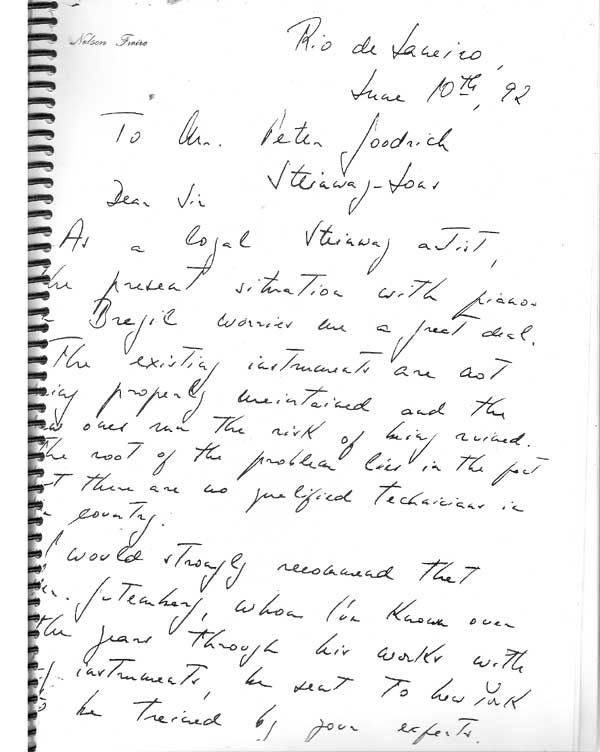 Nelson Freire
Rio de Janeiro,
June 10th, 92
To Mr. Peter Goodrich
Steinway-Sons
Dear Sir
As a loyal Steinway artist,
he present situation with pianos
Brazil worries me a great deal.
The existing instruments are not
ing properly maintained and the
ones run the risk of being ruined.
the root of the problem lies in the fact
t there are no qualified technicians in
country.
I would strongly recommend that
r. Gutemberg, whom I've known over
the years through his works with
y instruments, be sent to New York
o be trained by your experts.